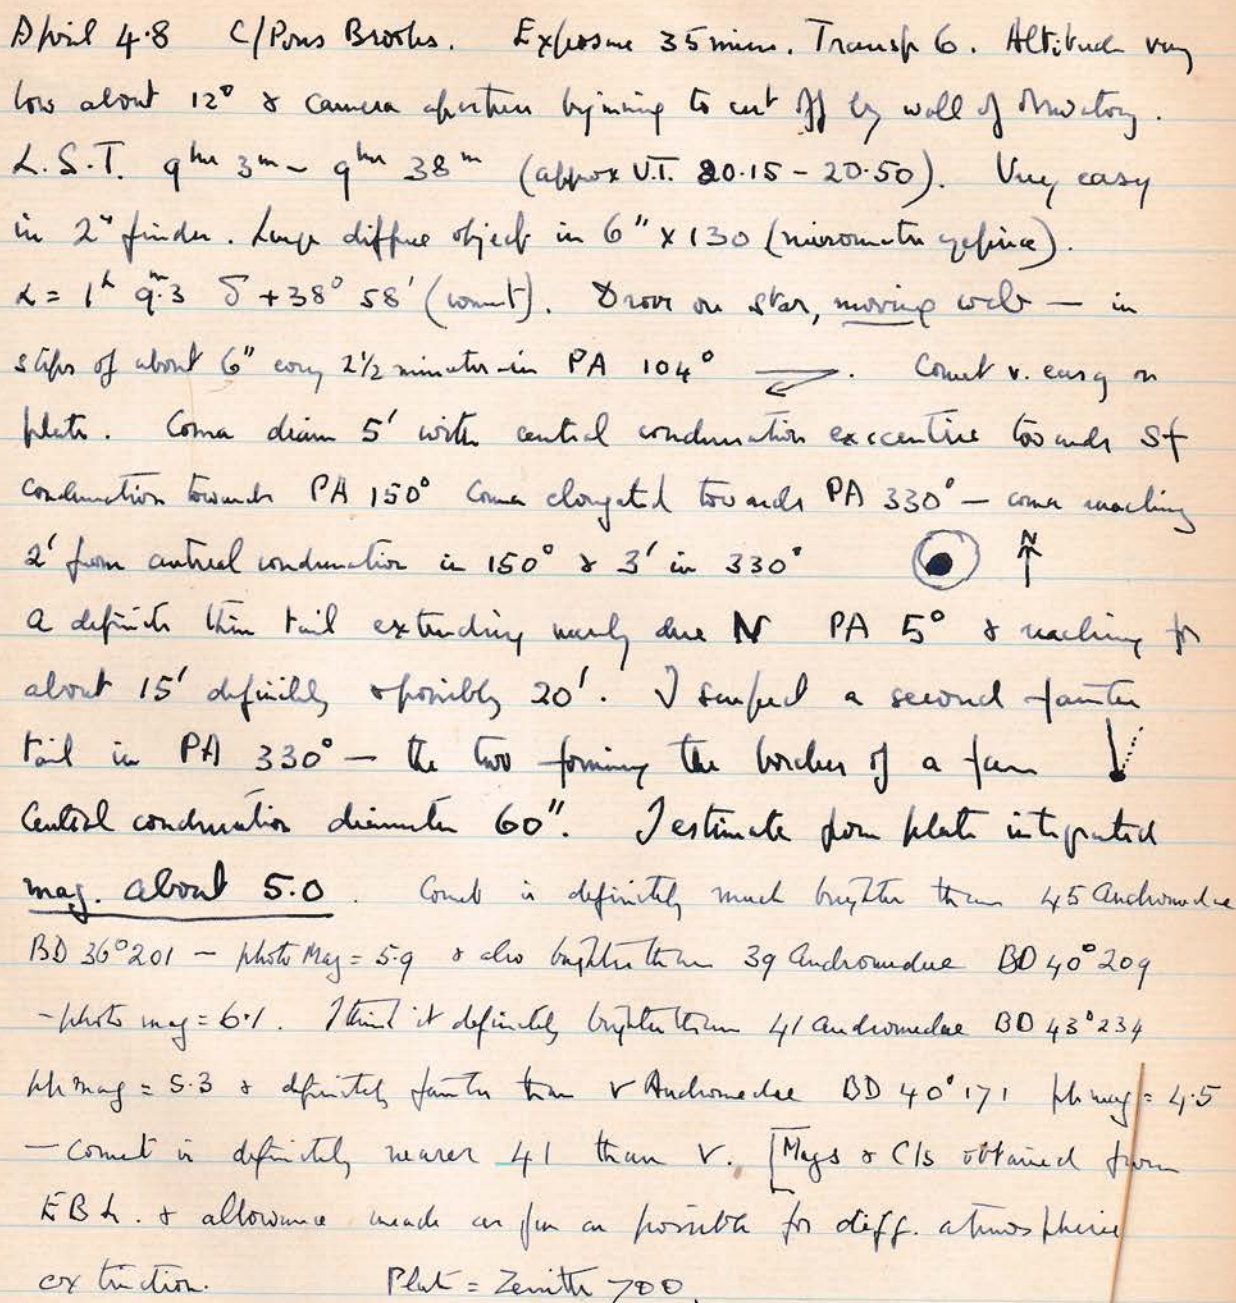 April 4.8 C/Pons Brooks. Exposure 35 mins. Transp 6. Altitude very
low about 12° & camera aperture beginning to cut off by wall of observatory.
L.S.T. 9hrs 3m - 9hrs 38m (approx U.T. 20.15 - 20.50). Very easy
in 2" finder. Large diffuse object in 6" x 130 (micrometer eyepiece).
α = 1h 9m.3 δ +38° 58' (comet). Drove on star, moving web — in
steps of about 6" every 2½ minutes in PA 104° . Comet v. easy on
plate. Coma diam 5' with central condensation exccentric towards Sf
condensation towards PA 150° Coma elongated towards PA 330° — coma reaching
2' from central condensation in 150° & 3' in 330° N
A definite thin tail extending nearly due N PA 5° & reaching for
about 15' definitely & possibly 20'. I suspect a second fainter
tail in PA 330° — the two forming the borders of a fan
Central condensation diameter 60". I estimate from plate integrated
mag. about 5.0. Comet is definitely much brighter than 45 Andromedae
BD 36°201 — photo Mag = 5.9 & also brighter than 39 Andromedae BD 40°209
- photo mag = 6.1. I think it definitely brighter than 41 Andromedae BD 43°234
ph mag = 5.3 & definitely fainter than ν Andromedae BD 40°171 ph mag = 4.5
— Comet is definitely nearer 41 than ν. [Mags & C/s obtained from
EBL. & allowance made as far as possible for diff. atmospheric
extinction. Plate = Zenith 700.